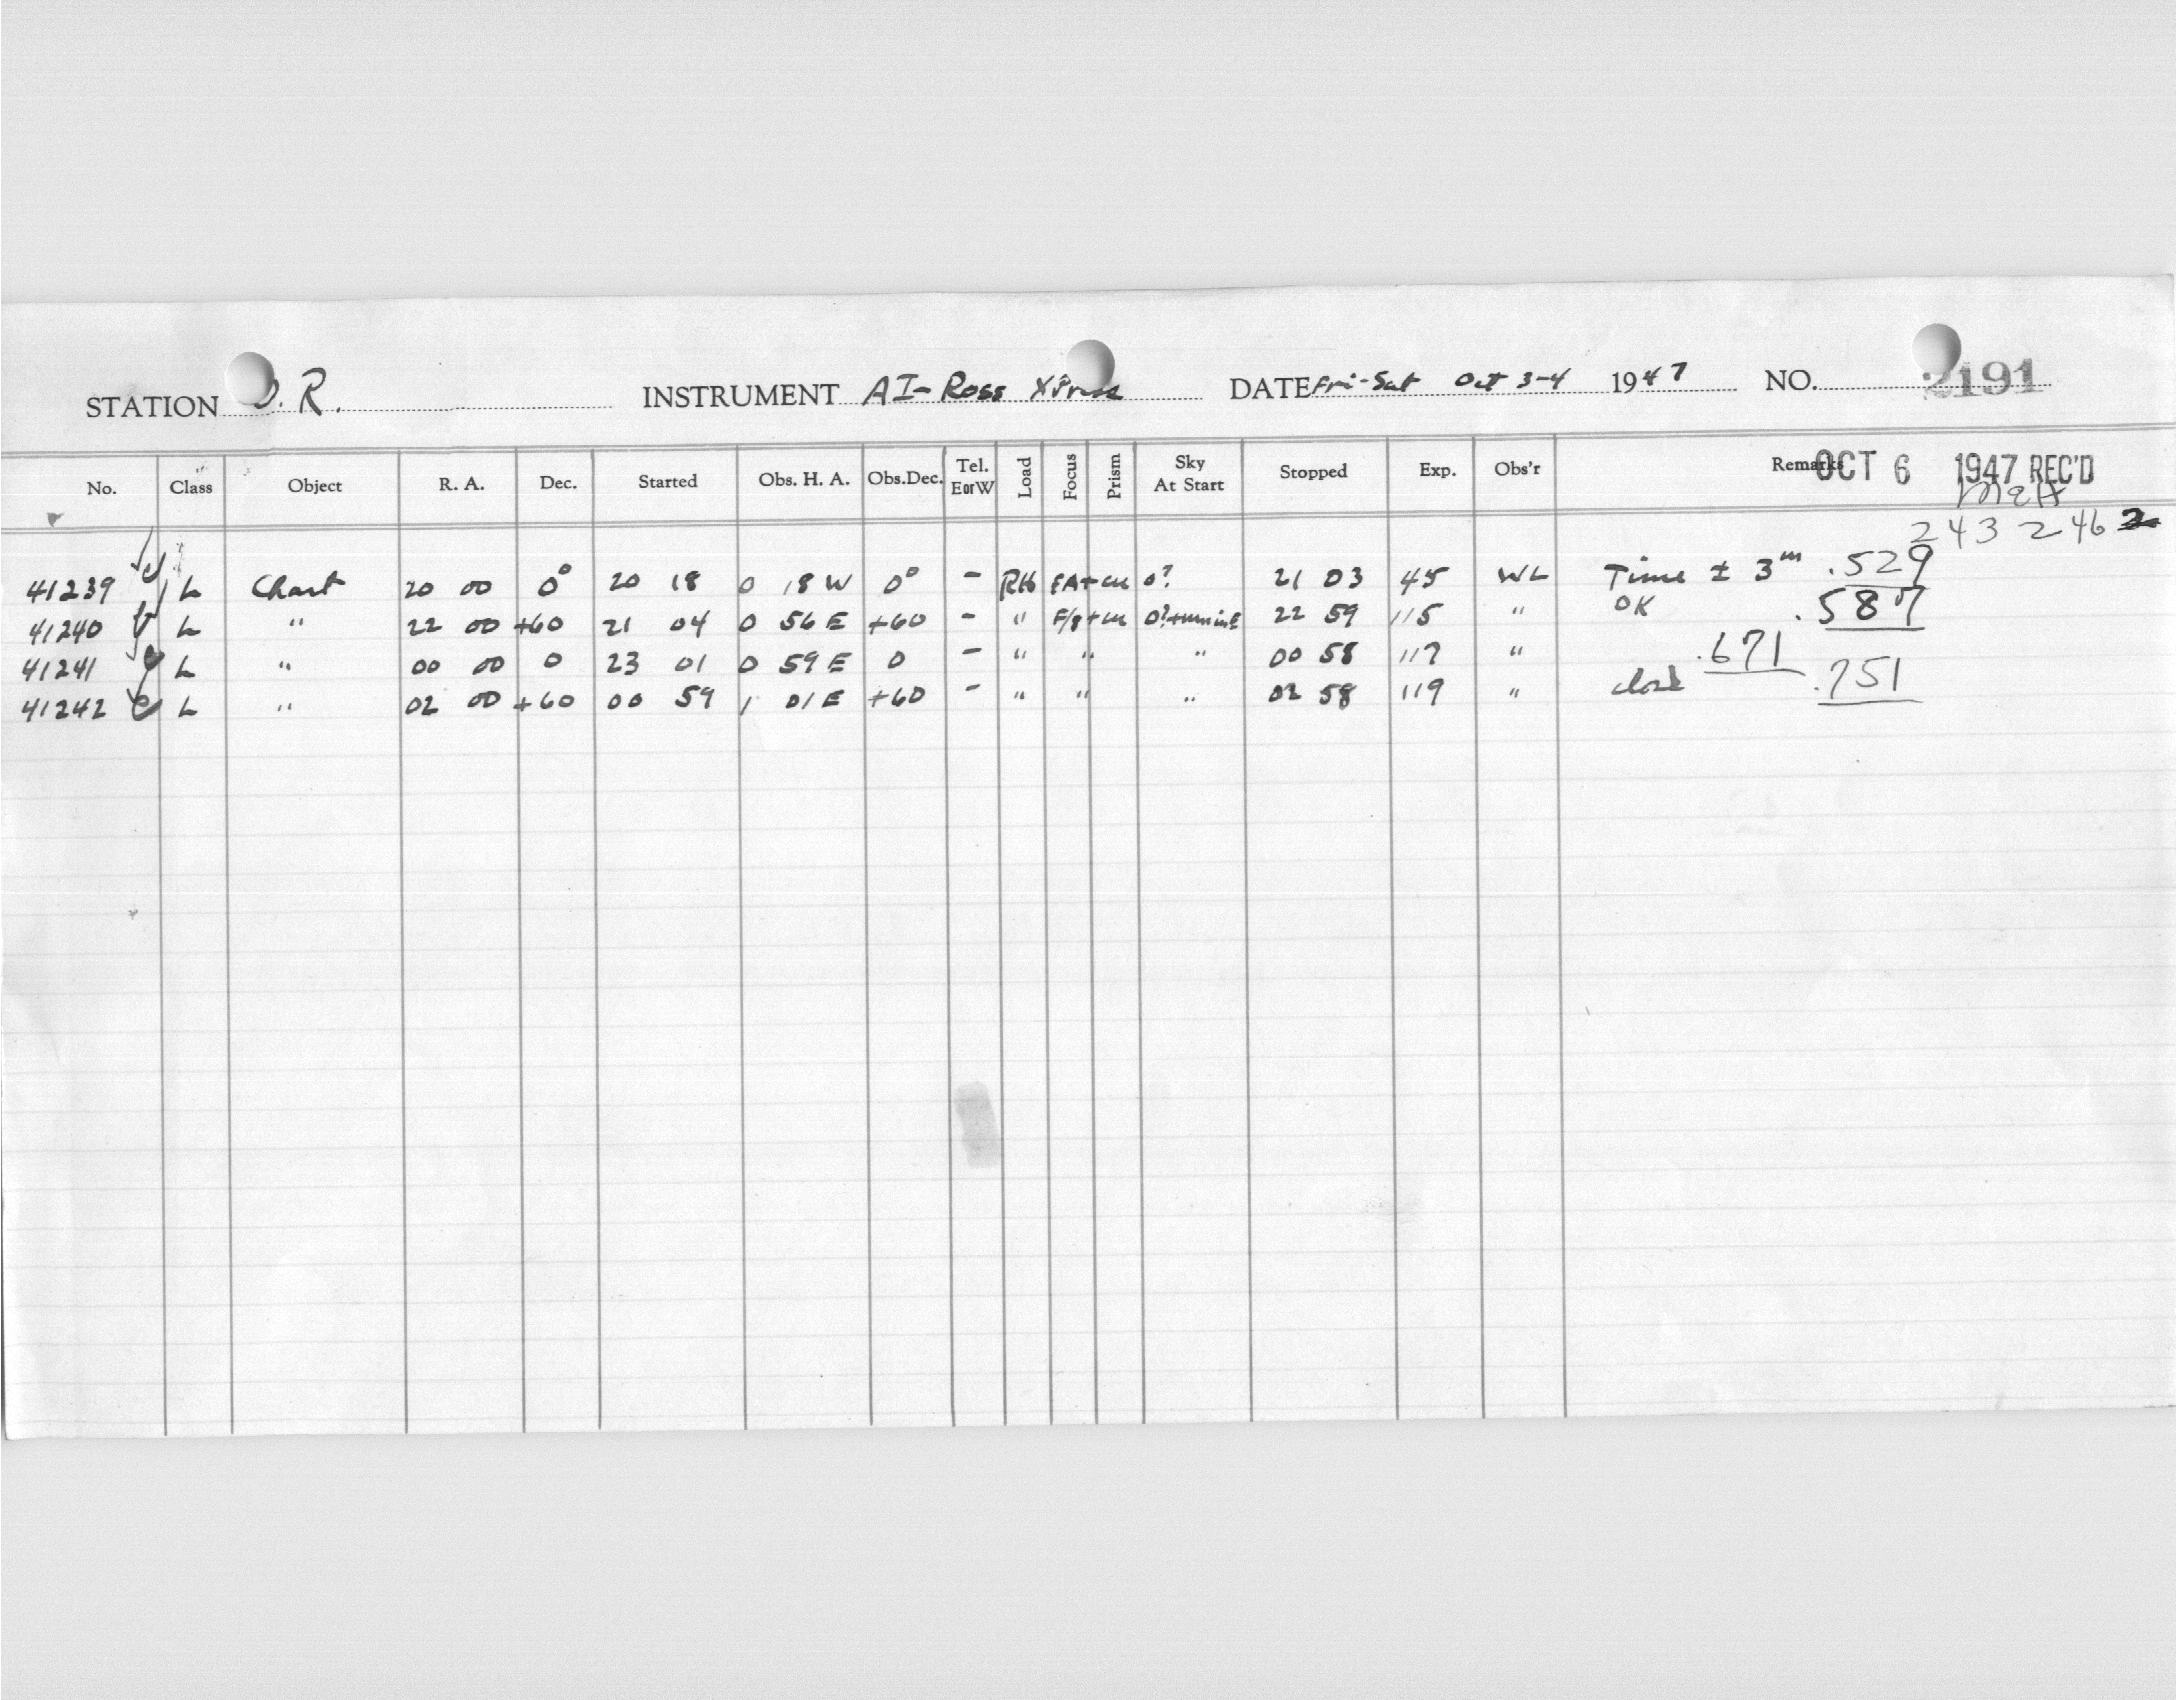 STATION O.R. INSTRUMENT AI-Ross Xpress DATE Fri-Sat Oct 3-4 1947 NO. 2191
No. Class Object R. A. Dec. Started Obs. H. A. Obs.Dec. Tel. E or W Load Focus Prism Sky At Start Stopped Exp. Obs'r Remarks
OCT 6 1947 REC'D
243 2462
41239 L Chart 20 00 0° 20 18 0 18 W 0° - RH FA+ 0? 21 03 45 WL Time ± 3m .529
41240 L " 22 00 +60 21 04 0 56 E +60 - " 22 59 115 " OK .587
41241 L " 00 00 0 23 01 0 59 E 0 - " " " 00 58 117 " .671
41242 L " 02 00 +60 00 59 1 01 E +60 - " " " 02 58 119 " .751